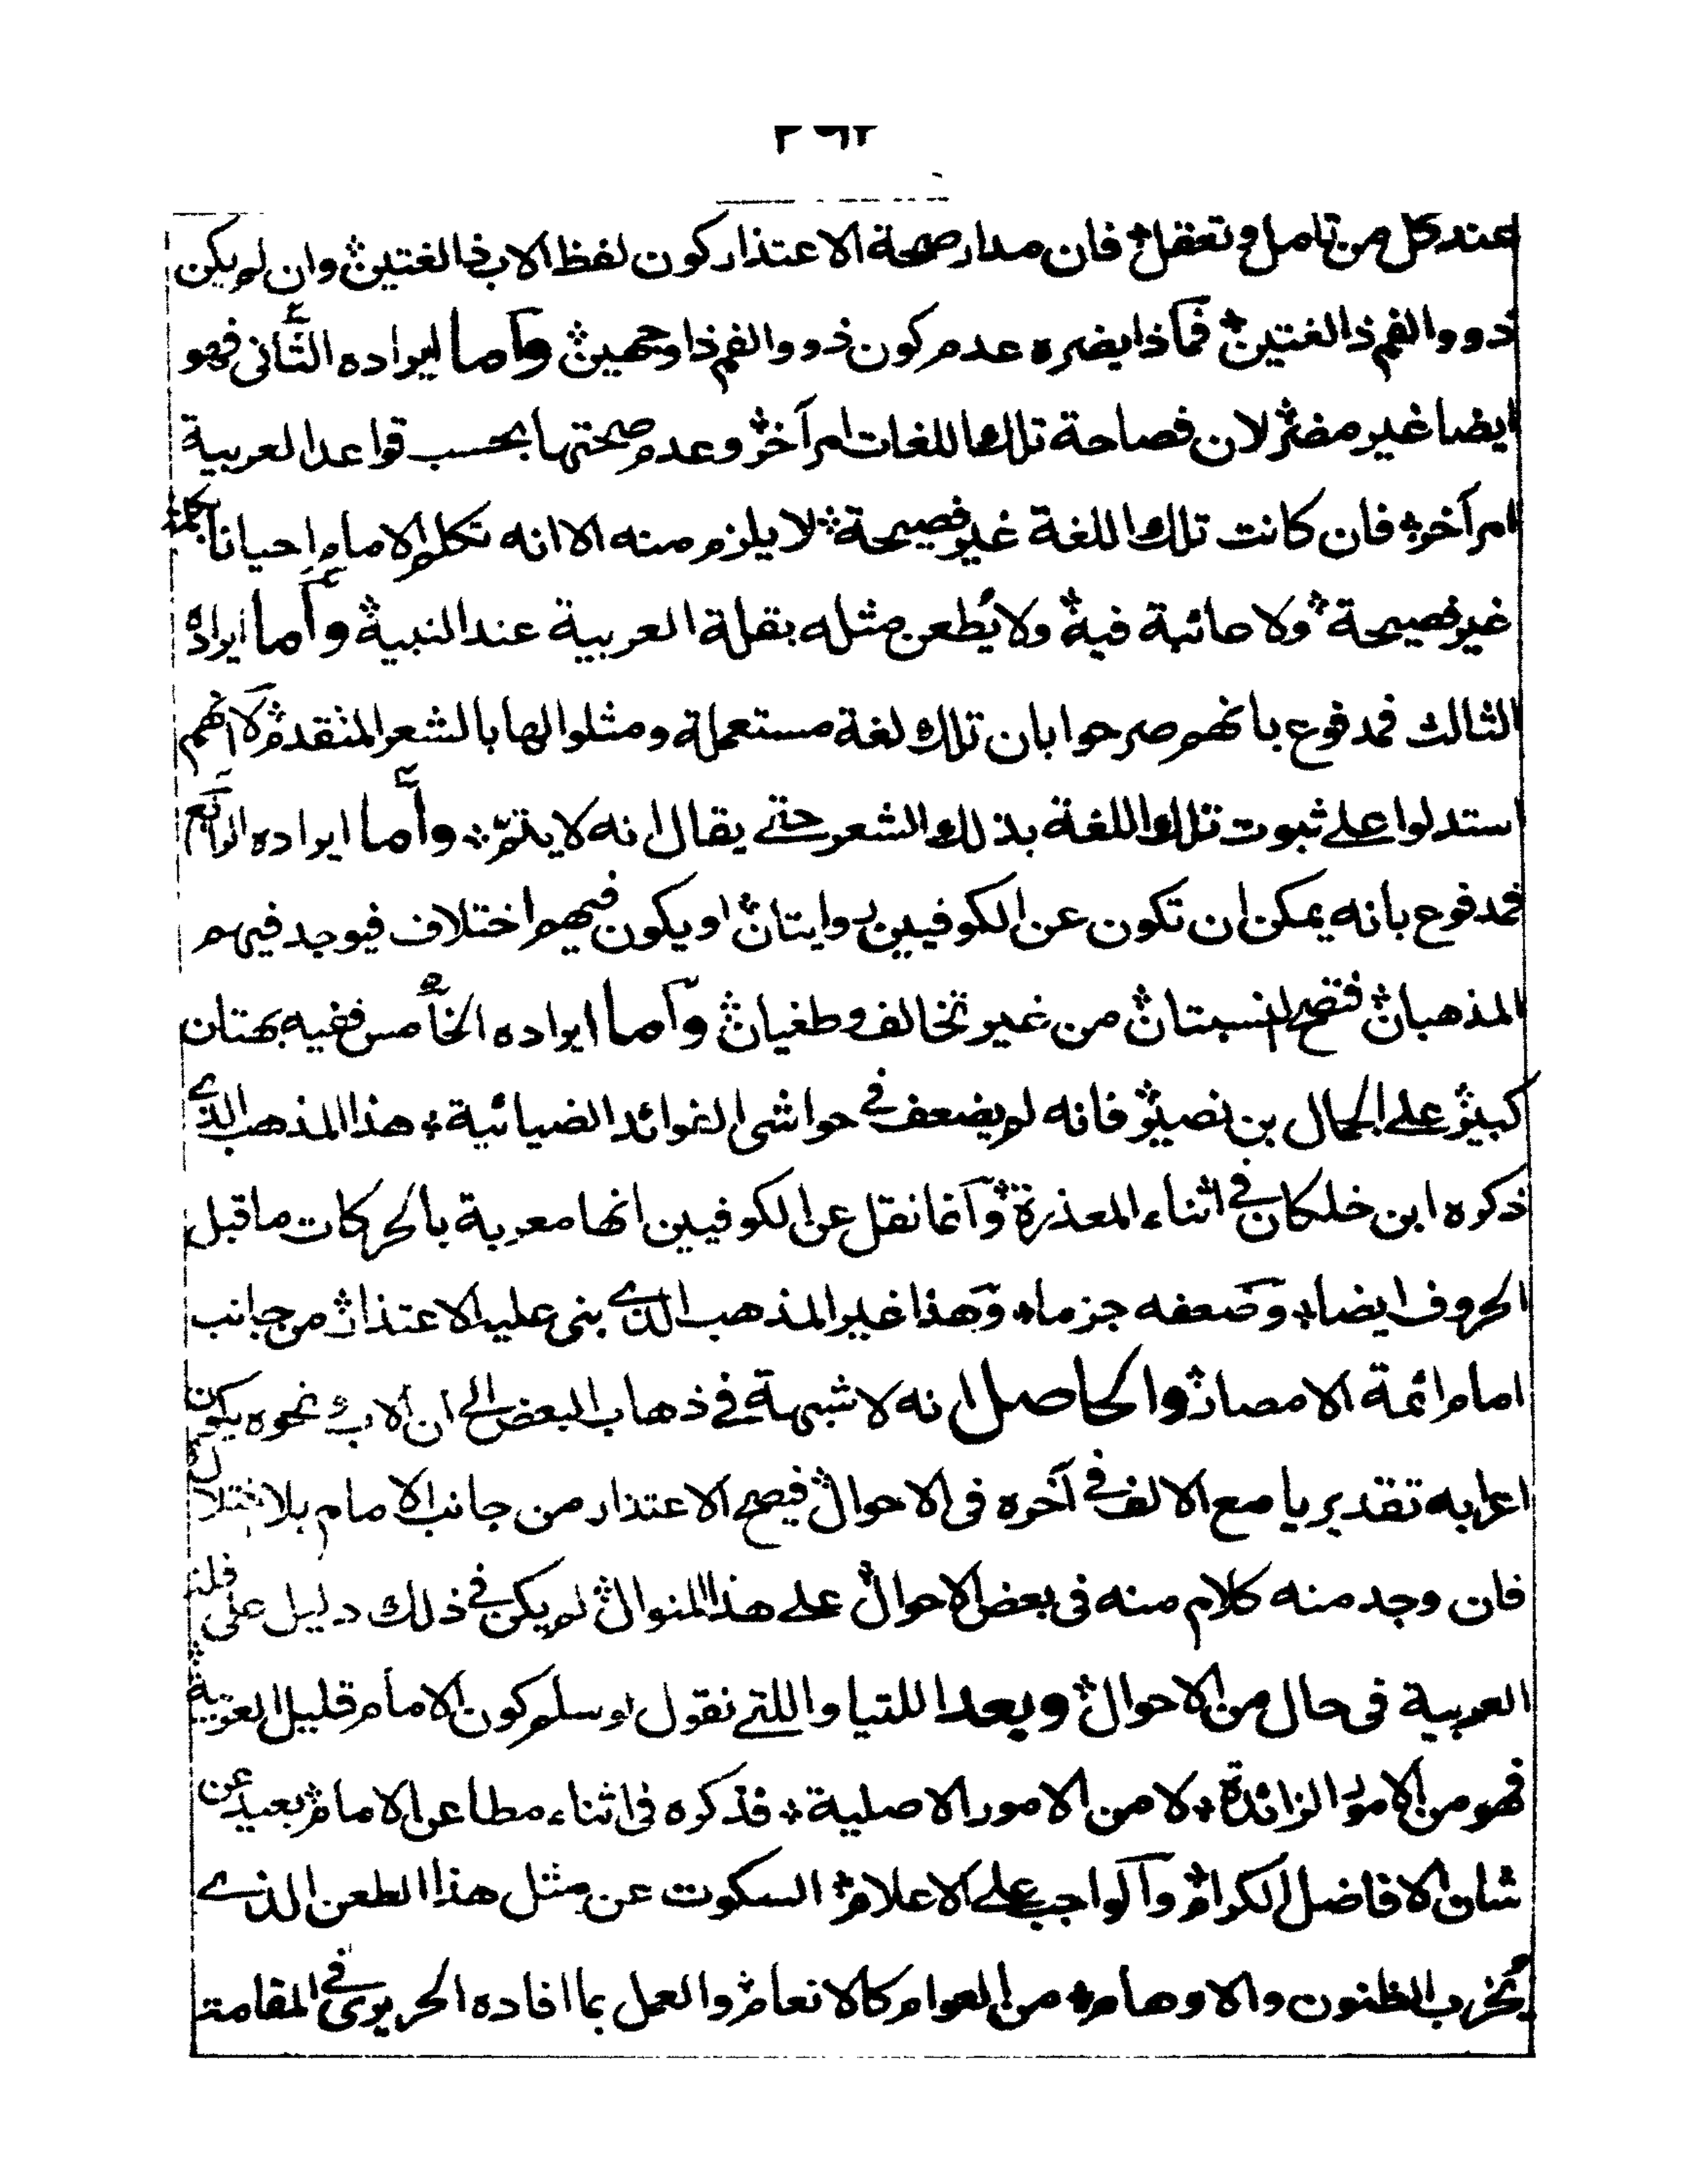 عند كل من تامل وتعقل فان مدار صحة الاعتذار كون لفظ الاب ذا لغتين وان لم يكن
ذو والفم ذا لغتين فماذا يضره عدم كون ذو والفم ذا وجهين واما ايراده الثاني فهو
ايضا غير مضر لان فصاحة تلك اللغات امر آخر وعدم صحتها بحسب قواعد العربية
امر آخر فان كانت تلك اللغة غير فصيحة لا يلزم منه الا انه تكلم الامام احيانا بكلمة
غير فصيحة ولا عائبة فيه ولا يُطعن مثله بقلة العربية عند النبيه واما ايراده
الثالث فمدفوع بانهم صرحوا بان تلك لغة مستعملة ومثلوا لها بالشعر المتقدم لا انهم
استدلوا على ثبوت تلك اللغة بذلك الشعر حتى يقال انه لا يتم واما ايراده الرابع
فمدفوع بانه يمكن ان تكون عن الكوفيين روايتان او يكون فيهم اختلاف فيوجد فيهم
المذهبان فتصح النسبتان من غير تخالف وطغيان واما ايراده الخامس ففيه بهتان
كبير على الجمال بن نصير فانه لم يضعف في حواشي الفوائد الضيائية هذا المذهب الذي
ذكره ابن خلكان في اثناء المعذرة وانما نقل عن الكوفيين انها معربة بالحركات ما قبل
الحروف ايضا وضعفه جزما وهذا غير المذهب الذي بنى عليه الاعتذار من جانب
امام ائمة الامصار والحاصل انه لا شبهة في ذهاب البعض الى ان الاب ونحوه يكون
اعرابه تقديريا مع الالف في آخره في الاحوال فيصح الاعتذار من جانب الامام بلا اختلال
فان وجد منه كلام منه في بعض الاحوال على هذا المنوال لم يكن في ذلك دليل على قلة
العربية في حال من الاحوال وبعد اللتيا واللتي نقول لو سلم كون الامام قليل العربية
فهو من الامور الزائدة لا من الامور الاصلية فذكره في اثناء مطاعن الامام بعيد عن
شان الافاضل الكرام والواجب على الاعلام السكوت عن مثل هذا الطعن الذي
يُخرب الظنون والاوهام من العوام كالانعام والعمل بما افاده الحريري في المقامة